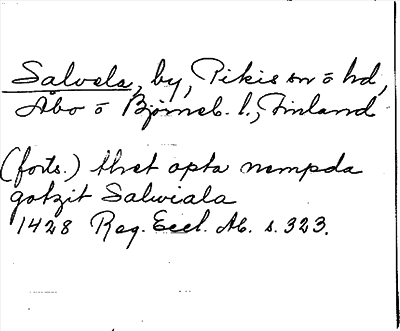 Salvela, by, Pikis sn o hd,
Åbo o Björneb. l., Finland
(forts.) thet opta nempda
gotzit Salwiala
1428 Reg. Eccl. Ab. s. 323.